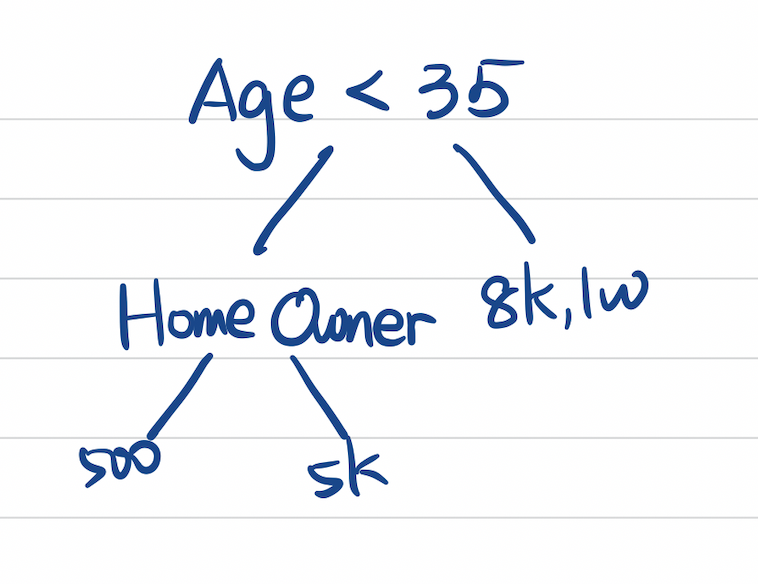 Age < 35
Home Owner
8k, 1w
500
5k